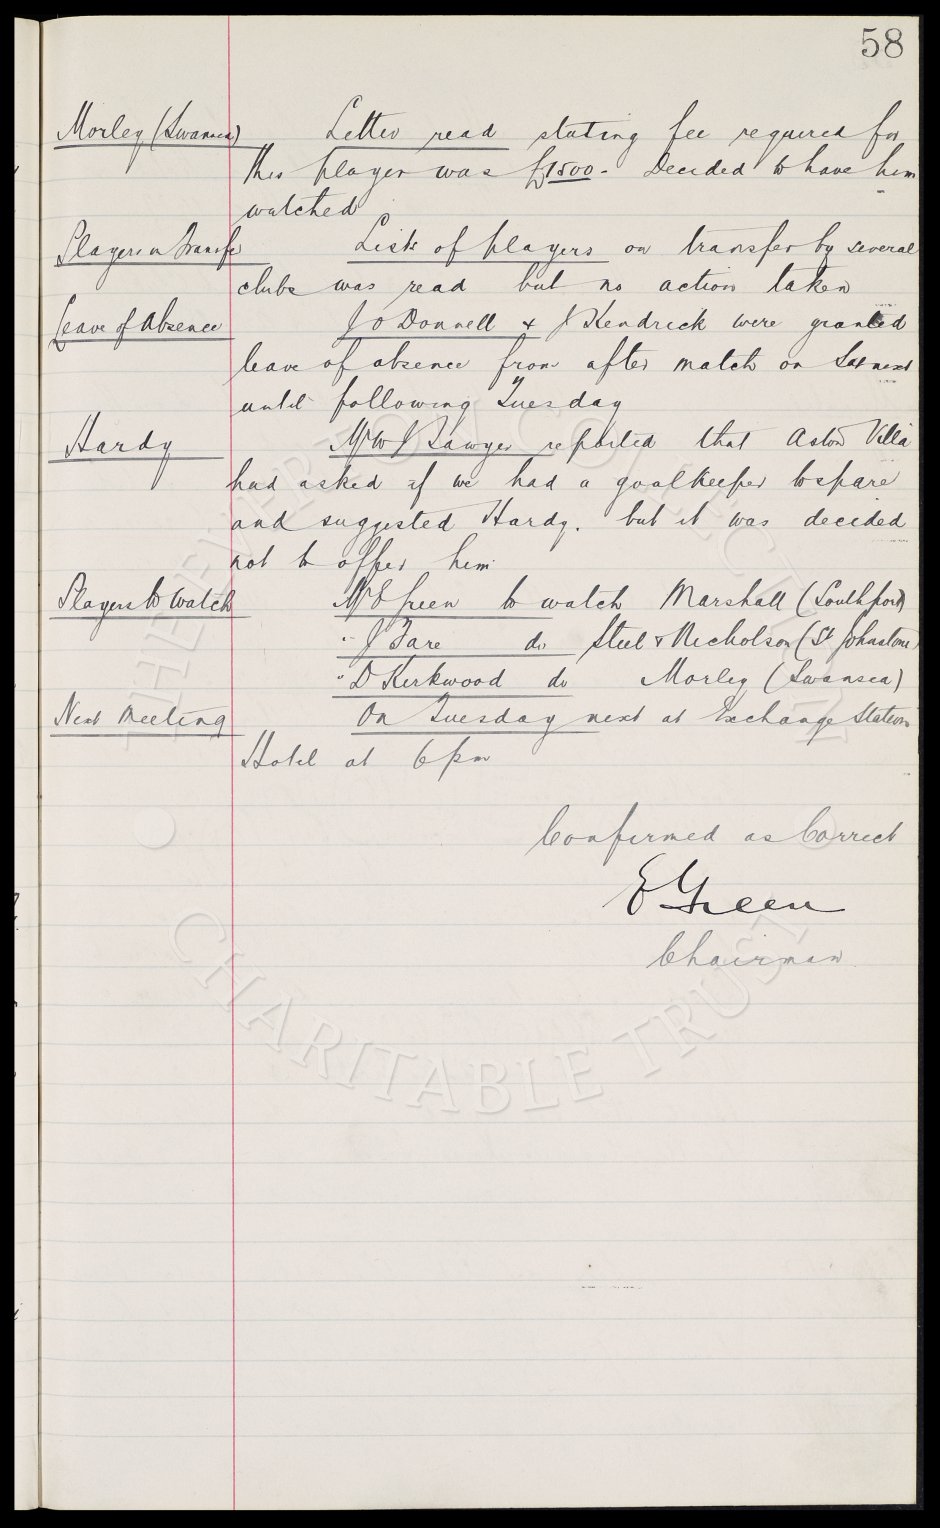 58
Morley (Swansea) Letter read stating fee required for
this player was £1500 - Decided to have him
watched
Players on Transfer Lists of players on transfer by several
clubs was read but no action taken
Leave of Absence J O'Donnell & J Kendrick were granted
leave of absence from after match on Sat next
until following Tuesday
Hardy Mr W J Sawyer reported that Aston Villa
had asked if we had a goalkeeper to spare
and suggested Hardy. but it was decided
not to offer him
Players to Watch Mr E Green to watch Marshall (Southport)
" J Fare do Steel & Nicholson (St Johnstone)
" D Kirkwood do Morley (Swansea)
Next Meeting On Tuesday next at Exchange Station
Hotel at 6 pm
Confirmed as Correct
E Green
Chairman
THE EVERTON COLLECTION
CHARITABLE TRUST